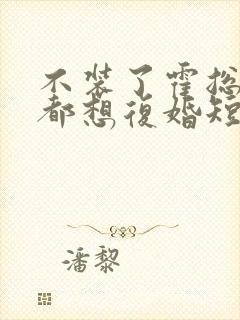 不装了霍总
都想復婚短
潘黎